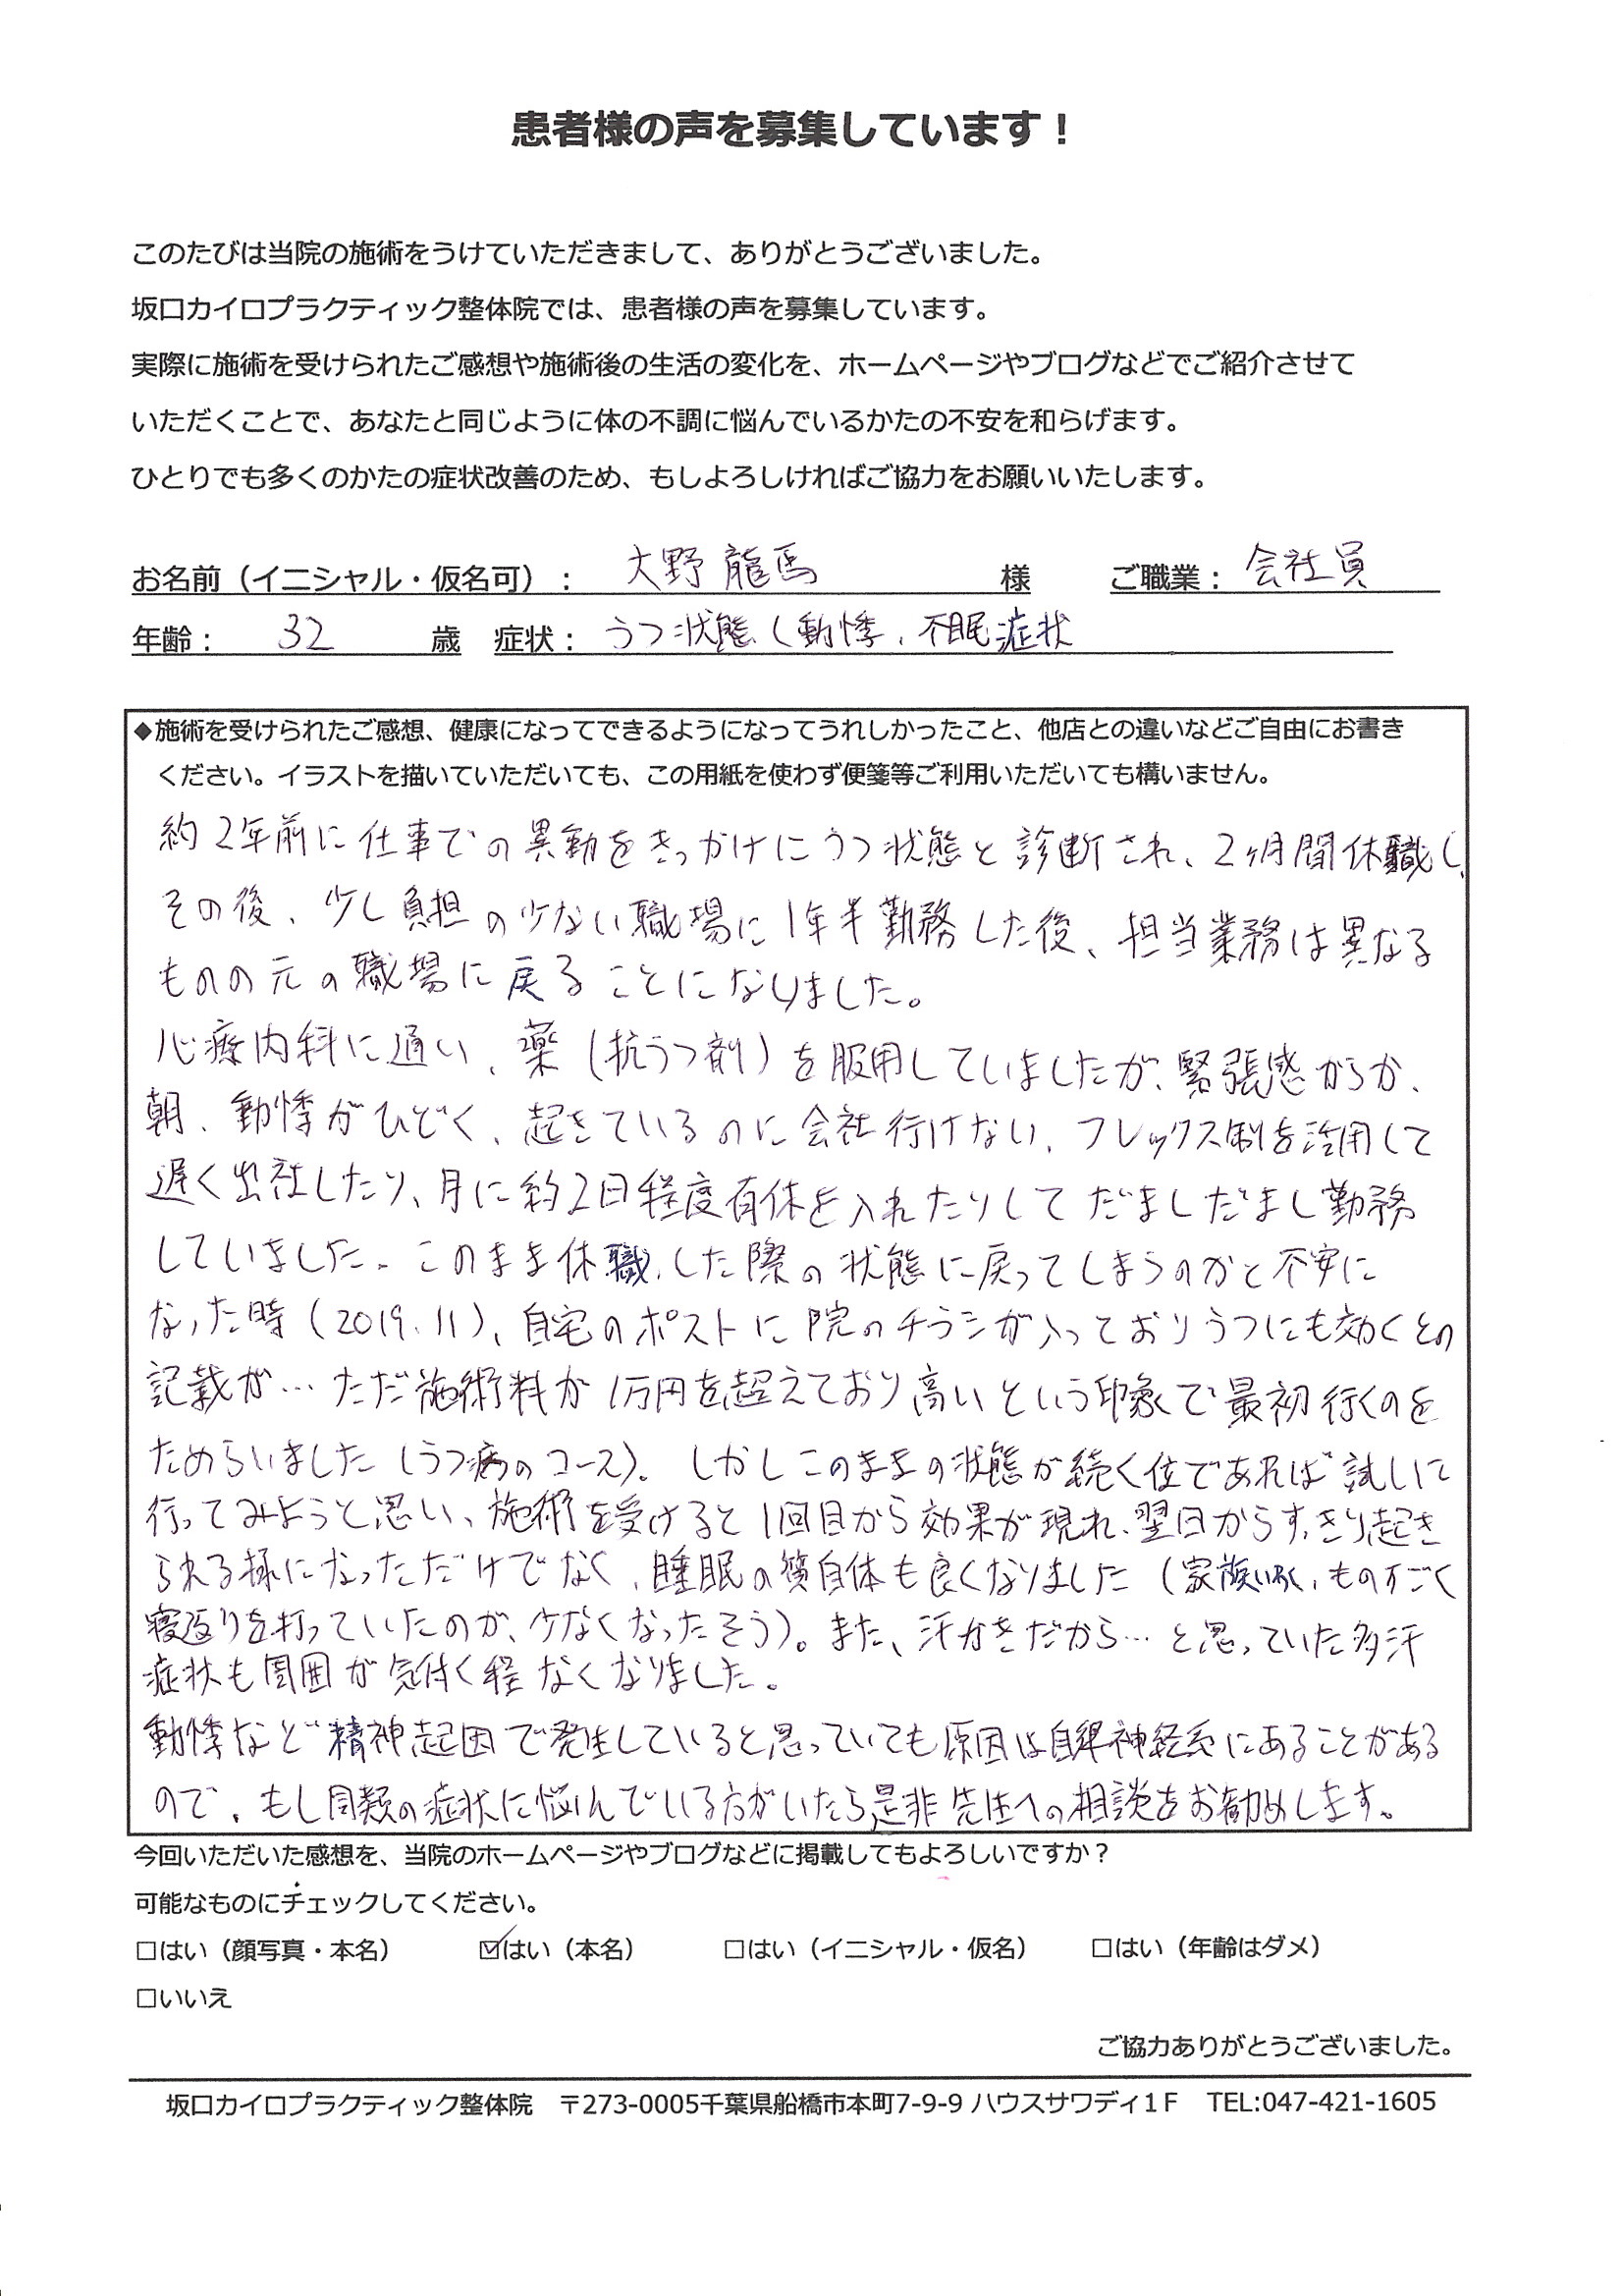 患者様の声を募集しています！
このたびは当院の施術をうけていただきまして、ありがとうございました。
坂口カイロプラクティック整体院では、患者様の声を募集しています。
実際に施術を受けられたご感想や施術後の生活の変化を、ホームページやブログなどでご紹介させて
いただくことで、あなたと同じように体の不調に悩んでいるかたの不安を和らげます。
ひとりでも多くのかたの症状改善のため、もしよろしければご協力をお願いいたします。
お名前（イニシャル・仮名可）： 大野 龍馬 様 ご職業： 会社員
年齢： 32 歳 症状： うつ状態（動悸、不眠症状
◆施術を受けられたご感想、健康になってできるようになってうれしかったこと、他店との違いなどご自由にお書き
ください。イラストを描いていただいても、この用紙を使わず便箋等ご利用いただいても構いません。
約2年前に仕事での異動をきっかけにうつ状態と診断され、2ヶ月間休職し、
その後、少し負担の少ない職場に1年半勤務した後、担当業務は異なる
ものの元の職場に戻ることになりました。
心療内科に通い、薬（抗うつ剤）を服用していましたが、緊張感からか、
朝、動悸がひどく、起きているのに会社行けない、フレックス制を活用して
遅く出社したり、月に約2日程度有休を入れたりしてだましだまし勤務
していました。このまま休職した際の状態に戻ってしまうのかと不安に
なった時（2019.11）、自宅のポストに院のチラシが入っておりうつにも効くとの
記載が…ただ施術料が1万円を超えており高いという印象で最初行くのを
ためらいました（うつ病のコース）。しかしこのままの状態が続く位であれば試しに
行ってみようと思い、施術を受けると1回目から効果が現れ、翌日からすっきり起き
られる様になっただけでなく、睡眠の質自体も良くなりました（家族いわく、ものすごく
寝返りを打っていたのが、少なくなったそう）。また、汗かきだから…と思っていた多汗
症状も周囲が気付く程なくなりました。
動悸など精神起因で発生していると思っていても原因は自律神経系にあることがある
ので、もし同類の症状に悩んでいる方がいたら是非先生への相談をお勧めします。
今回いただいた感想を、当院のホームページやブログなどに掲載してもよろしいですか？
可能なものにチェックしてください。
□はい（顔写真・本名） ☑はい（本名） □はい（イニシャル・仮名） □はい（年齢はダメ）
□いいえ
ご協力ありがとうございました。
坂口カイロプラクティック整体院 〒273-0005千葉県船橋市本町7-9-9 ハウスサワディ１F TEL:047-421-1605